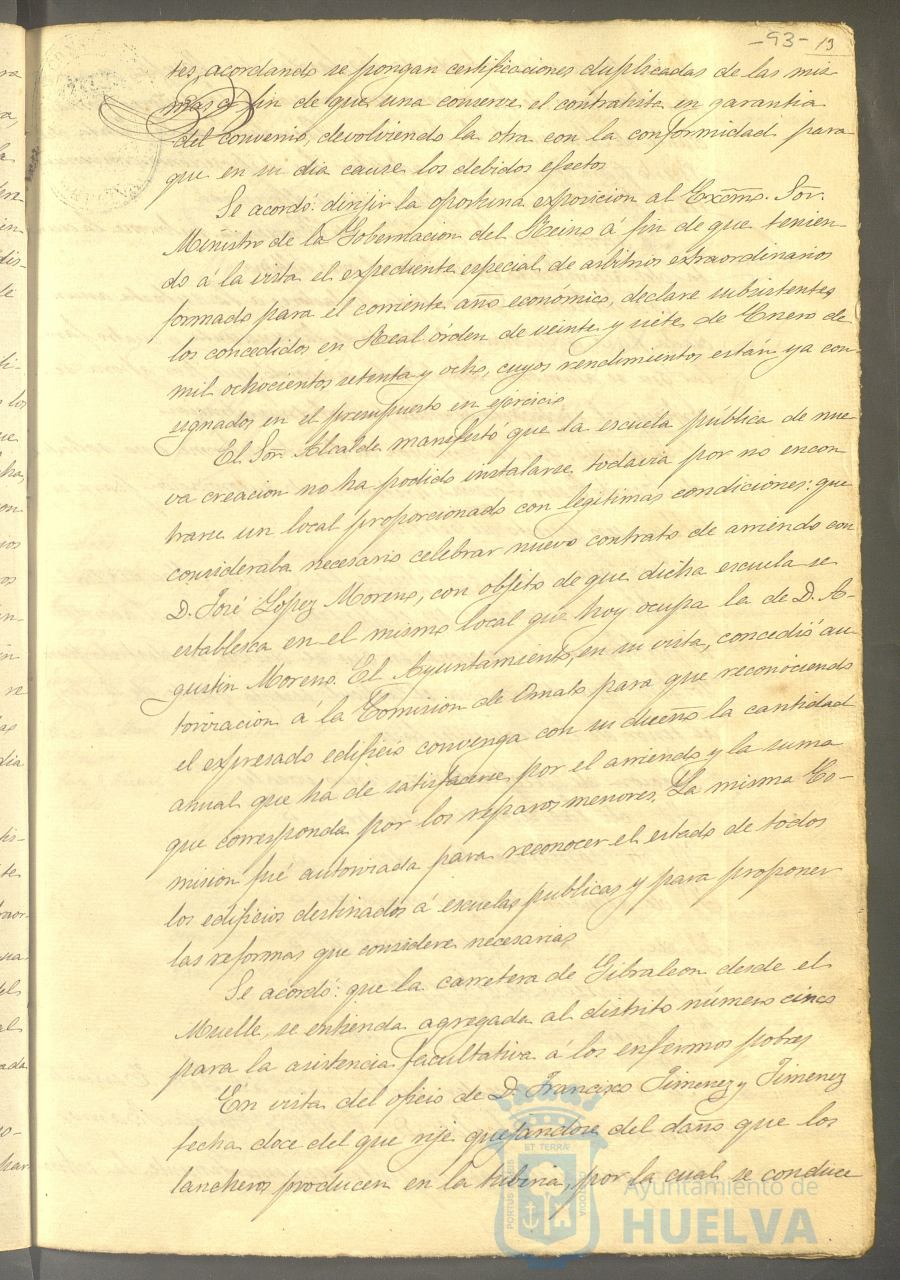 -93- 13
tes, acordando se pongan certificaciones duplicadas de las mis
mas, a fin de que una conserve el contratista en garantia
del convenio, devolviendo la otra con la conformidad para
que en su dia cause los debidos efectos
Se acordó: dirijir la oportuna exposicion al Excmo. Sor.
Ministro de la Gobernacion del Reino á fin de que tenien-
do á la vista el expediente especial de arbitrios extraordinarios
formado para el corriente año económico, declare subsistentes
los concedidos en Real órden de veinte y siete de Enero de
mil ochocientos setenta y ocho, cuyos rendimientos están ya con-
signados en el presupuesto en ejercicio
El Sor. Alcalde manifestó que la escuela pública de nue
va creacion no ha podido instalarse todavia por no encon
trarse un local proporcionado con legitimas condiciones: que
consideraba necesario celebrar nuevo contrato de arriendo con
D. José Lopez Moreno, con objeto de que dicha escuela se
establesca en el mismo local que hoy ocupa la de D. A-
gustin Moreno. El Ayuntamiento, en su vista, concedió au
torizacion á la Comision de Ornato para que reconociendo
el expresado edificio convenga con su dueño la cantidad
anual que ha de satisfacerse por el arriendo y la suma
que corresponda por los reparos menores. La misma Co-
mision fué autorizada para reconocer el estado de todos
los edificios destinados á escuelas publicas y para proponer
las reformas que considere necesarias
Se acordó: que la carretera de Gibraleon desde el
Muelle, se entienda agregada al distrito número cinco
para la asistencia facultativa á los enfermos pobres
En vista del oficio de D. Francisco Jimenez y Jimenez
fecha doce del que rije quejandose del daño que los
lancheros producen en la tuberia, por la cual se conduce
PORTUS MARIS ET TERRÆ CUSTODIA
Ayuntamiento de
HUELVA